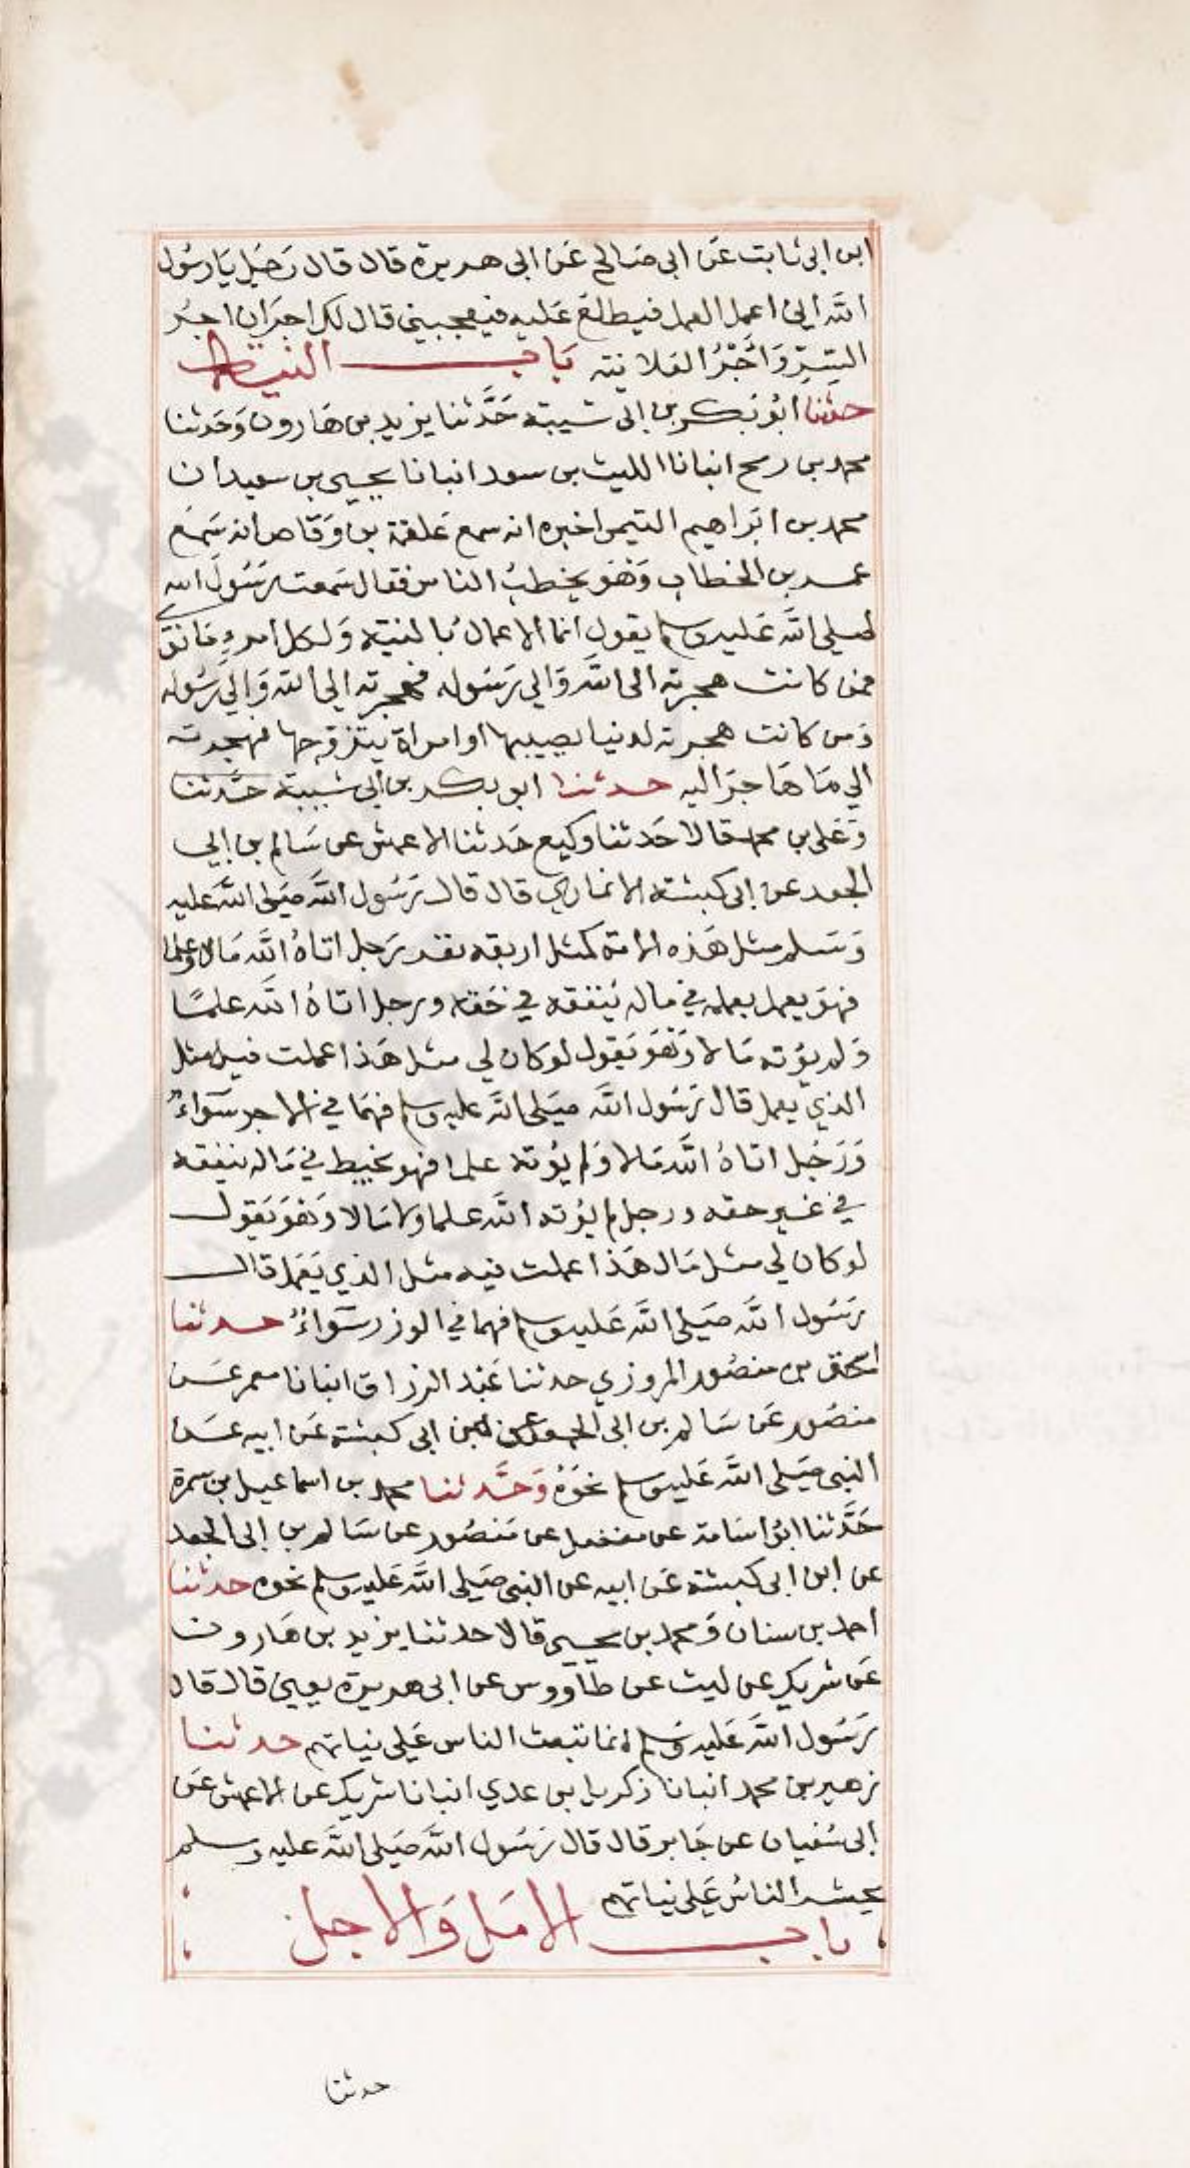 ابن ابى ثابت عَن ابى صَالح عَن ابى هريرة قال قال رَجُل يَا رسُول
اللَّه اني اعمل العمل فيطلع عَليه فيعجبني قال لك اجرَان اجرُ
السِّرِّ وَأَجْرُ العَلانيته بَاب النية
حدثنا ابُو بَكر بن ابى شيبة حَدَّثنا يزيد بن هَارون وَحَدثنا
محمد بن رمح انبانا الليث بن سعد انبانا يحيى بن سعيد ان
محمد بن ابرَاهيم التيمى اخبره انه سمع عَلقمة بن وَقاص انه سَمعَ
عمر بن الخطاب وَهوَ يخطبُ الناس فقال سَمعت رَسُولَ الله
صلى اللَّه عَليه وسلم يقول انما الاعمالُ بالنية وَلكل امرءٍ مَا نوى
فمن كانت هجرته الى اللَّه وَالي رَسُوله فهجرته الي الله وَالي رَسُوله
وَمن كانت هجرته لدنيا يصيبها او امراة يتزوجها فهجرته
الي مَا هَاجرَ اليه حدثنا ابو بكر بن ابى شيبة حَدَّثنا
وَعَلى بن محمد قالا حَدثنا وكيع حَدثنا الاعمش عن سَالم بن ابي
الجعد عن ابى كبشة الانماري قال قال رَسُول اللَّه صَلى اللَّه عليه
وَسَلم مثل هَذه الامة كمثل اربعه نفر رَجل اتاهُ اللَّه مَالا وعلما
فهوَ يعمل بعلمه في ماله يُنفقه في حَقه ورجل اتاهُ اللَّه علمًا
وَلم يؤته مَالا وَهوَ يَقول لو كان لي مثل هَذا عملت فيه مثل
الذي يعمل قال رَسُول اللَّه صَلى اللَّه عليه وسلم فهمَا في الاجر سَوَاءٌ
وَرَجُل اتاهُ اللَّه مَالا وَلم يُؤته علما فهو يخبط في مَاله ينفقه
في غير حقه ورجل لم يُؤته اللَّه علما ولا مَالا وَهوَ يَقول
لو كان لي مثل مَال هَذا عملت فيه مثل الذي يَعمَل قال
رَسُول اللَّه صَلى اللَّه عَليه وسلم فهما في الوزر سَوَاءٌ حدثنا
اسحق بن منصُور المروزي حدثنا عَبْد الرزاق انبانا معمر عَن
منصُور عَن سَالم بن ابى الجعد عن ابن ابى كبشة عَن ابيه عَن
النبى صَلى اللَّه عَليه وسلم نحوَهُ وَحَدَّثنا محمد بن اسماعيل بن سمرة
حَدَّثنا ابُو اسَامة عن مفضل عن مَنصُور عن سَالم بن ابى الجعد
عن ابن ابى كبشة عَن ابيه عن النبى صَلى اللَّه عَليه وسلم نحوه حدثنا
احمد بن سنان وَمحمد بن يحيى قالا حدثنا يزيد بن هَارون
عَن شريك عن ليث عن طاووس عن ابى هريرة يعني قال قال
رَسُول اللَّه عَليه وَسلم انما تبعث الناس عَلى نياتهم حدثنا
زهير بن محمد انبانا زكريا بن عدي انبانا شريك عن الاعمش عَن
ابى سُفيان عن جَابر قال قال رَسُول اللَّه صَلى اللَّه عليه وسلم
يحشر الناسُ عَلى نياتهم
باب الامَل وَالاجل
حدثنا